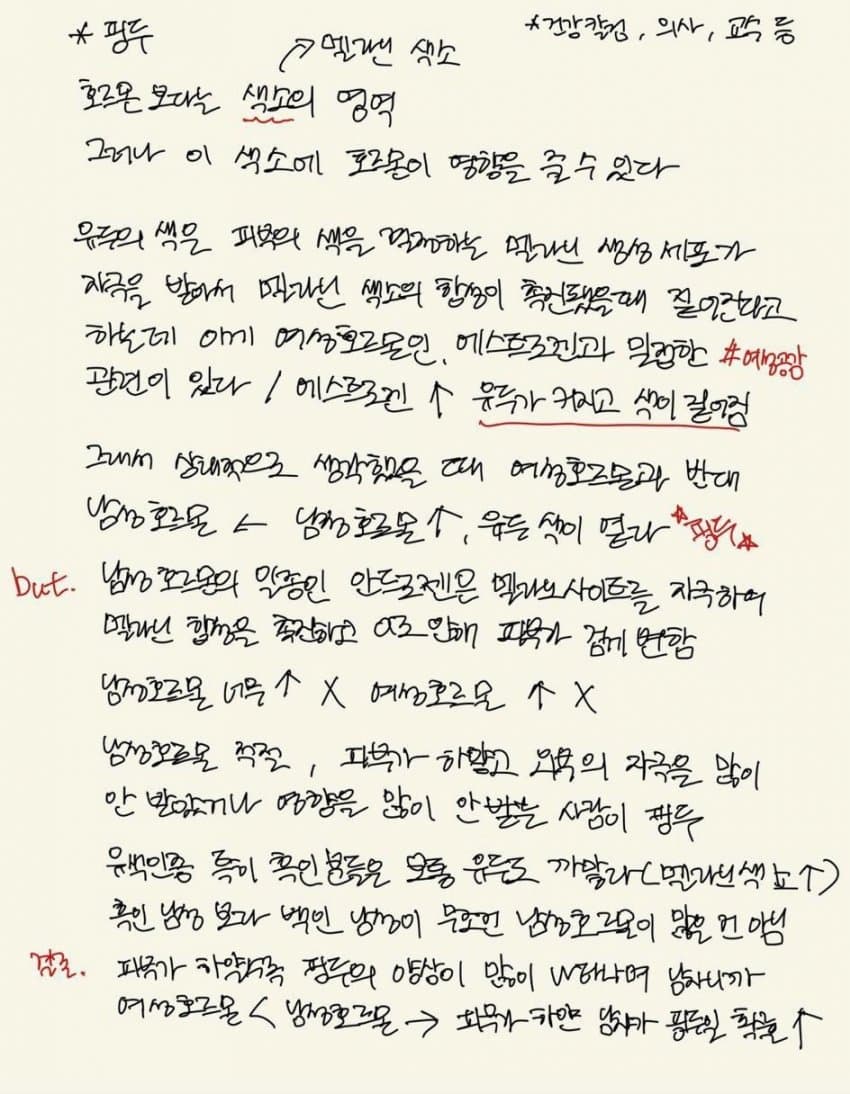 * 핑두
*건강칼럼, 의사, 교수 등
↗멜라닌 색소
호르몬 보다는 색소의 영역
그러나 이 색소에 호르몬이 영향을 줄 수 있다
유두의 색은 피부의 색을 결정하는 멜라닌 생성 세포가
자극을 받아서 멜라닌 색소의 합성이 촉진됐을때 짙어진다고
하는데 이게 여성호르몬인, 에스트로겐과 밀접한 #여성공장
관련이 있다 / 에스트로겐 ↑ 유두가 커지고 색이 짙어짐
그래서 상대적으로 생각했을 때 여성호르몬과 반대
남성호르몬 ← 남성호르몬↑, 유두 색이 옅다 ☆핑두☆
but. 남성호르몬의 일종인 안드로젠은 멜라노사이트를 자극하여
멜라닌 합성을 촉진하고 이로 인해 피부가 검게 변함
남성호르몬 너무 ↑ X 여성호르몬 ↑ X
남성호르몬 적절, 피부가 하얗고 외부의 자극을 많이
안 받았거나 영향을 많이 안 받는 사람이 핑두
유색인종 특히 흑인분들은 보통 유두도 까맣다(멜라닌색소↑)
흑인 남성 보다 백인 남성이 무조건 남성호르몬이 많은 건 아님
결론. 피부가 하얄수록 핑두의 양상이 많이 나타나며 남자니까
여성호르몬 < 남성호르몬 → 피부가 하얀 남자가 핑두일 확률 ↑